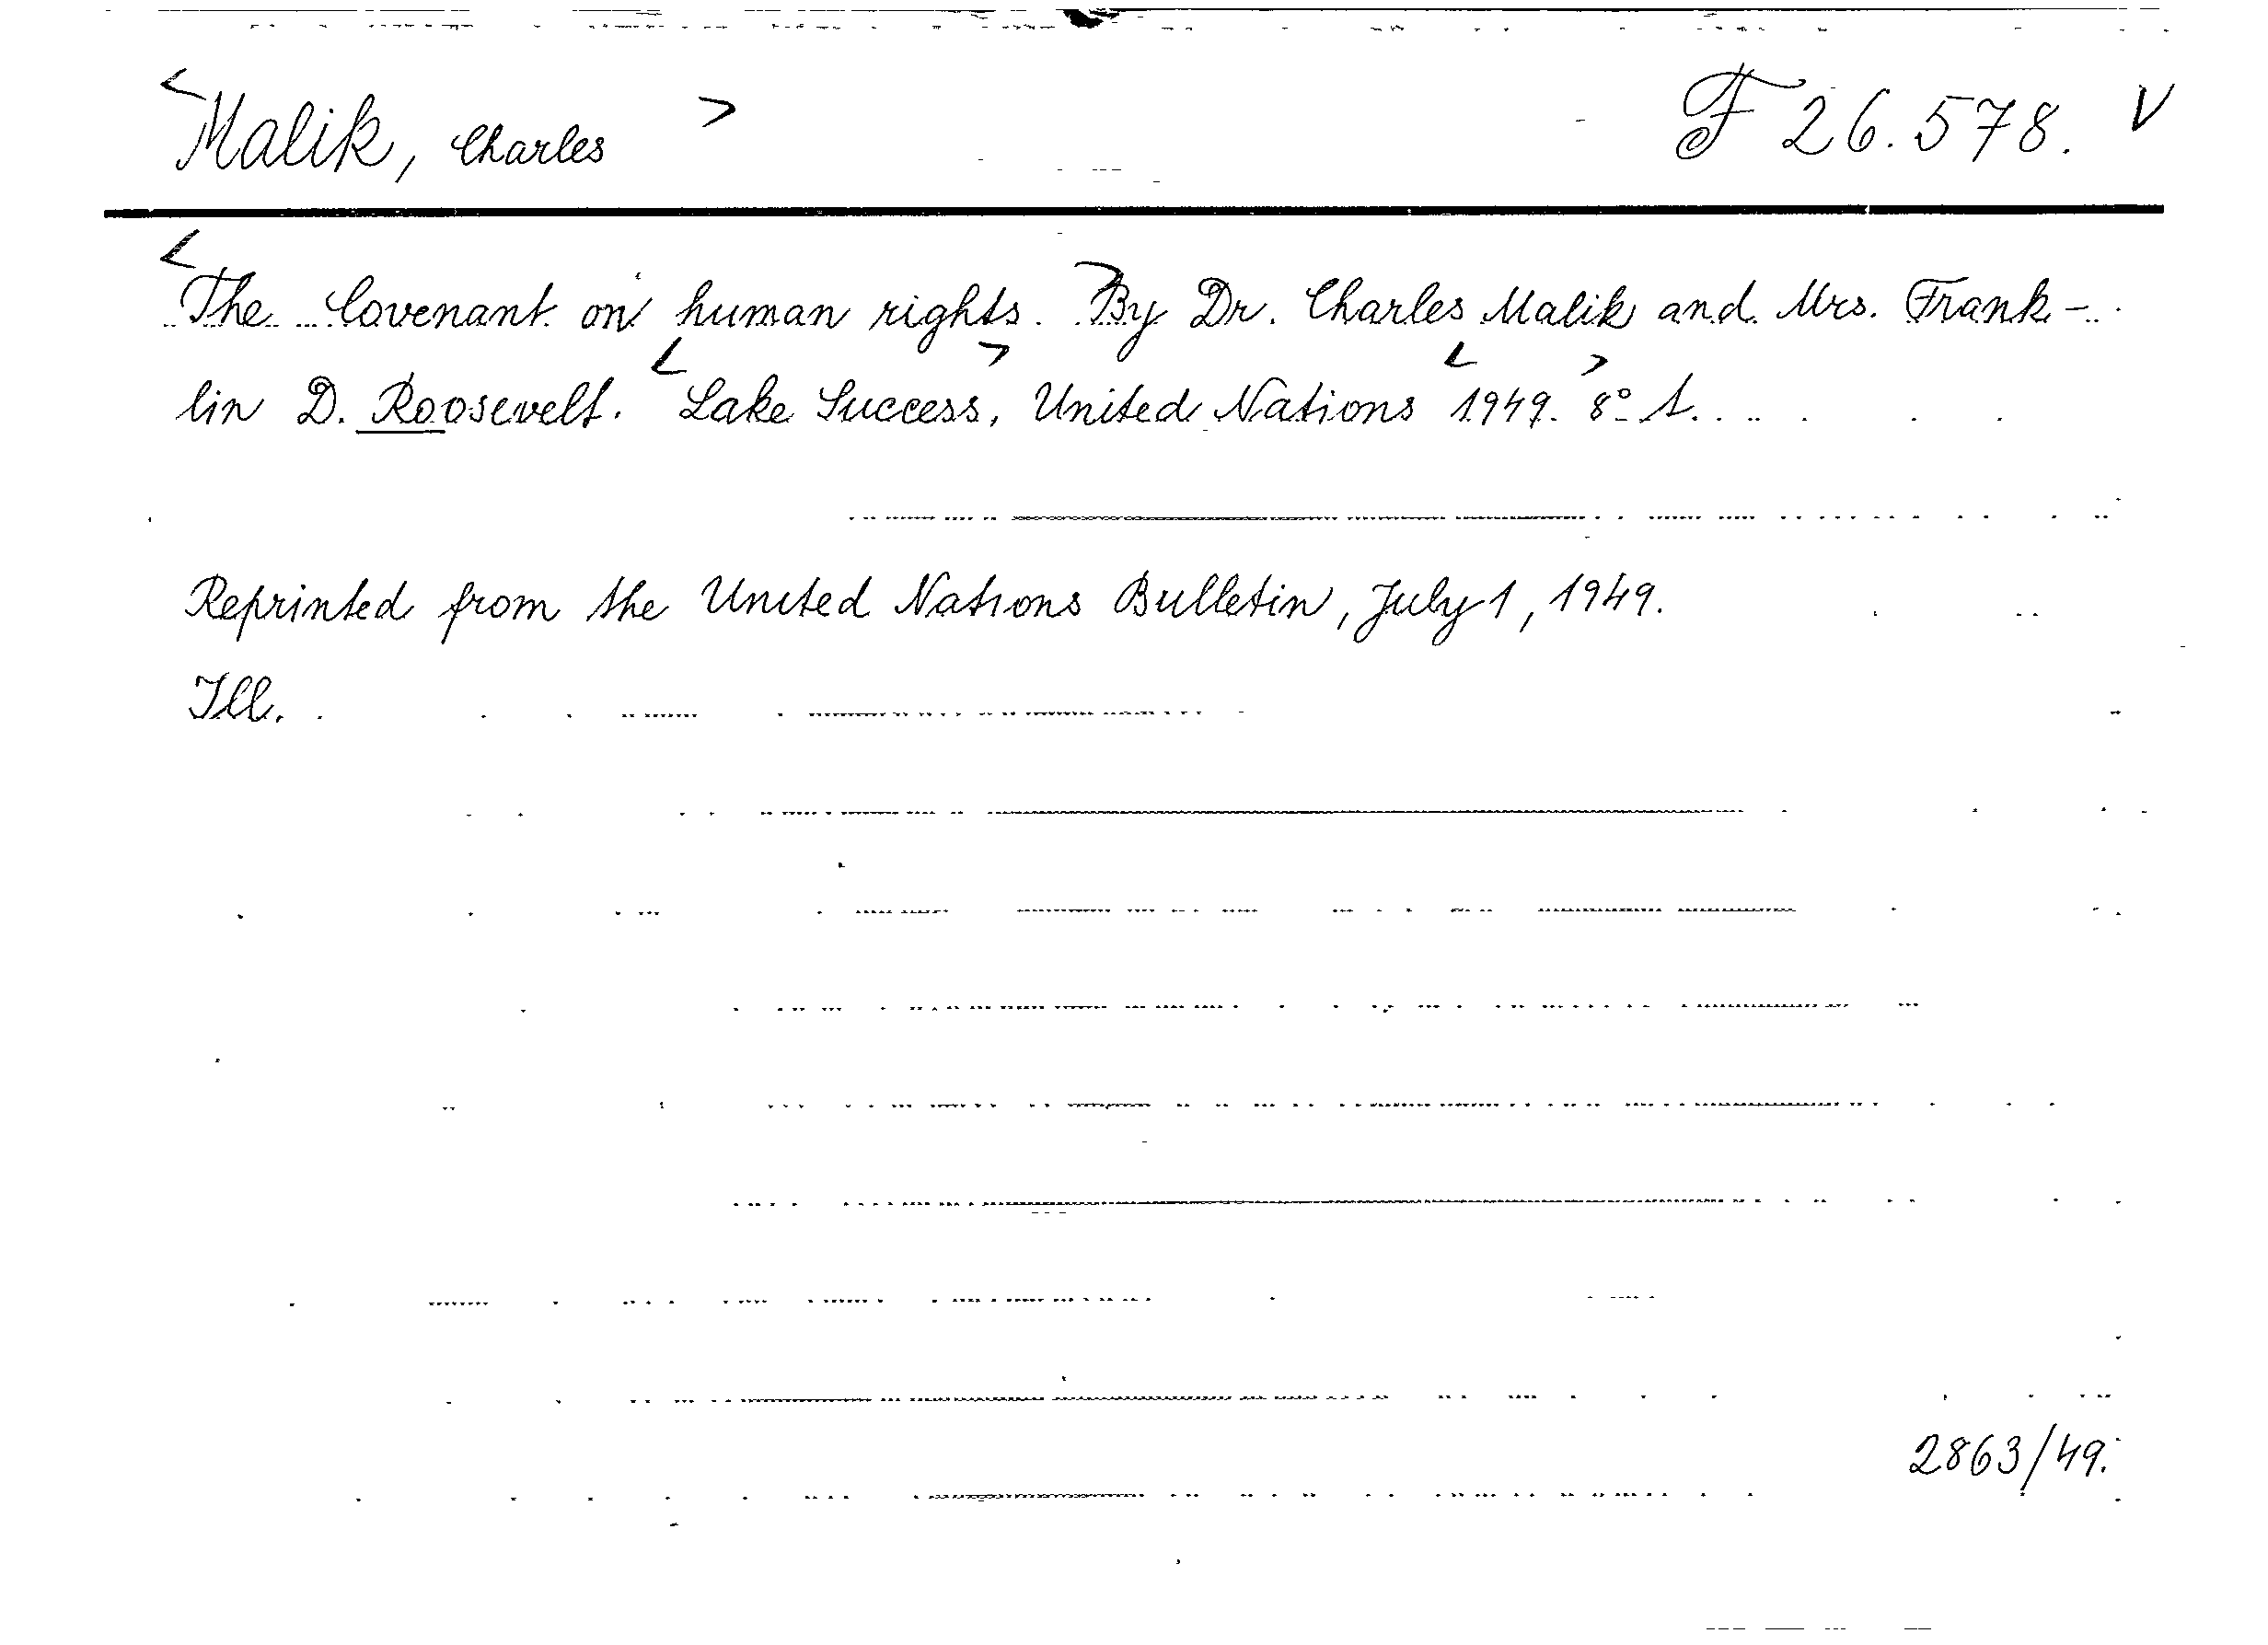 <Malik, Charles> F 26.578. V
<The Covenant on human rights.> By Dr. Charles Malik and Mrs. Frank-
lin D. Roosevelt. <Lake Success,> United Nations <1949.> 8° 1.
Reprinted from the United Nations Bulletin, July 1, 1949.
Ill.
2863/49.